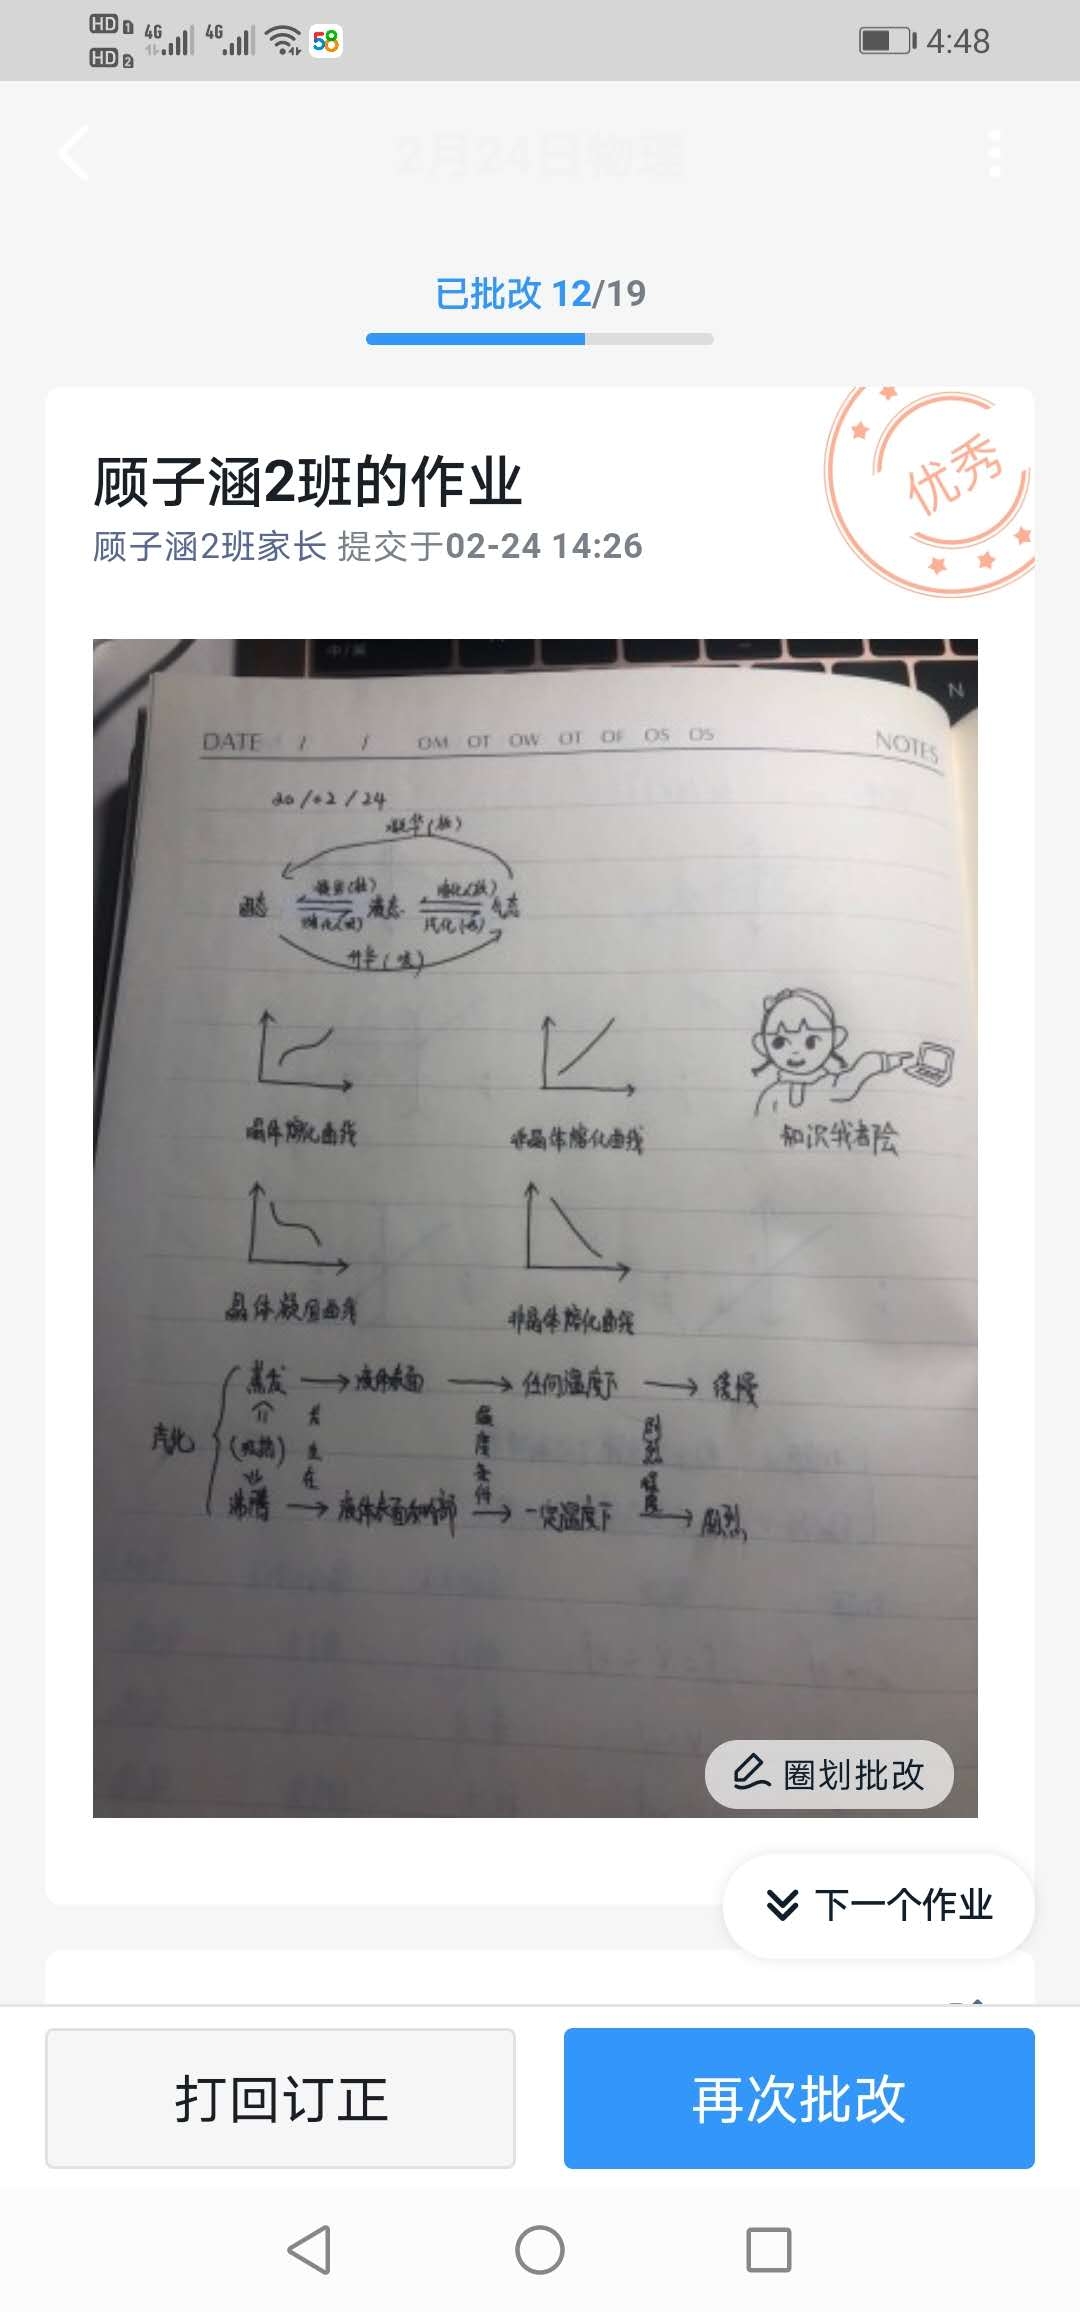 HD 1 4G 4G 58 4:48
HD 2
2月24日物理
已批改 12/19
优秀
顾子涵2班的作业
顾子涵2班家长 提交于02-24 14:26
中/英
N
DATE / / OM OT OW OT OF OS OS NOTES
20/02/24
凝华(放)
凝固(放) 液化(放)
固态 液态 气态
熔化(吸) 汽化(吸)
升华(吸)
晶体熔化曲线 非晶体熔化曲线 知识我者险
晶体凝固曲线 非晶体熔化曲线
蒸发 液体表面 任何温度下 缓慢
汽化 (吸热) 发生在 温度条件 剧烈程度
沸腾 液体表面和内部 一定温度下 剧烈
圈划批改
下一个作业
打回订正 再次批改